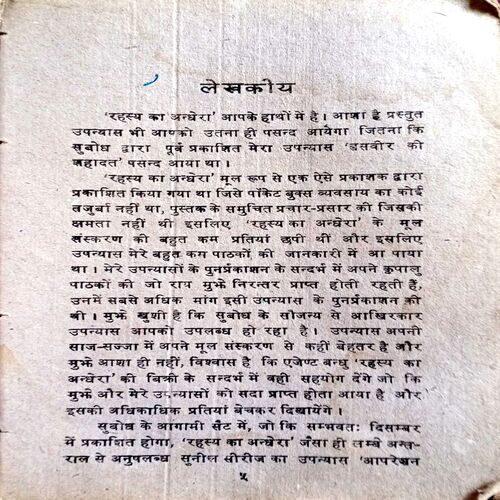 लेखकीय
'रहस्य का अन्धेरा' आपके हाथों में है। आशा है प्रस्तुत
उपन्यास भी आपको उतना ही पसन्द आयेगा जितना कि
सुबोध द्वारा पूर्व प्रकाशित मेरा उपन्यास 'तस्वीर की
शहादत' पसन्द आया था।
'रहस्य का अन्धेरा' मूल रूप से एक ऐसे प्रकाशक द्वारा
प्रकाशित किया गया था जिसे पॉकेट बुक्स व्यवसाय का कोई
तजुर्बा नहीं था, पुस्तक के समुचित प्रचार-प्रसार की जिसकी
क्षमता नहीं थी इसलिए 'रहस्य का अन्धेरा' के मूल
संस्करण की बहुत कम प्रतियां छपी थीं और इसलिए
उपन्यास मेरे बहुत कम पाठकों की जानकारी में आ पाया
था। मेरे उपन्यासों के पुनर्प्रकाशन के सन्दर्भ में अपने कृपालु
पाठकों की जो राय मुझे निरन्तर प्राप्त होती रहती हैं,
उनमें सबसे अधिक मांग इसी उपन्यास के पुनर्प्रकाशन की
थी। मुझे खुशी है कि सुबोध के सौजन्य से आखिरकार
उपन्यास आपको उपलब्ध हो रहा है। उपन्यास अपनी
साज-सज्जा में अपने मूल संस्करण से कहीं बेहतर है और
मुझे आशा ही नहीं, विश्वास है कि एजेण्ट बन्धु 'रहस्य का
अन्धेरा' की बिक्री के सन्दर्भ में वही सहयोग देंगे जो कि
मुझे और मेरे उपन्यासों को सदा प्राप्त होता आया है और
इसकी अधिकाधिक प्रतियां बेचकर दिखायेंगे।
सुबोध के आगामी सैट में, जो कि सम्भवतः दिसम्बर
में प्रकाशित होगा, 'रहस्य का अन्धेरा' जैसा ही लम्बे अन्त-
राल से अनुपलब्ध सुनील सीरीज का उपन्यास 'आपरेशन
५